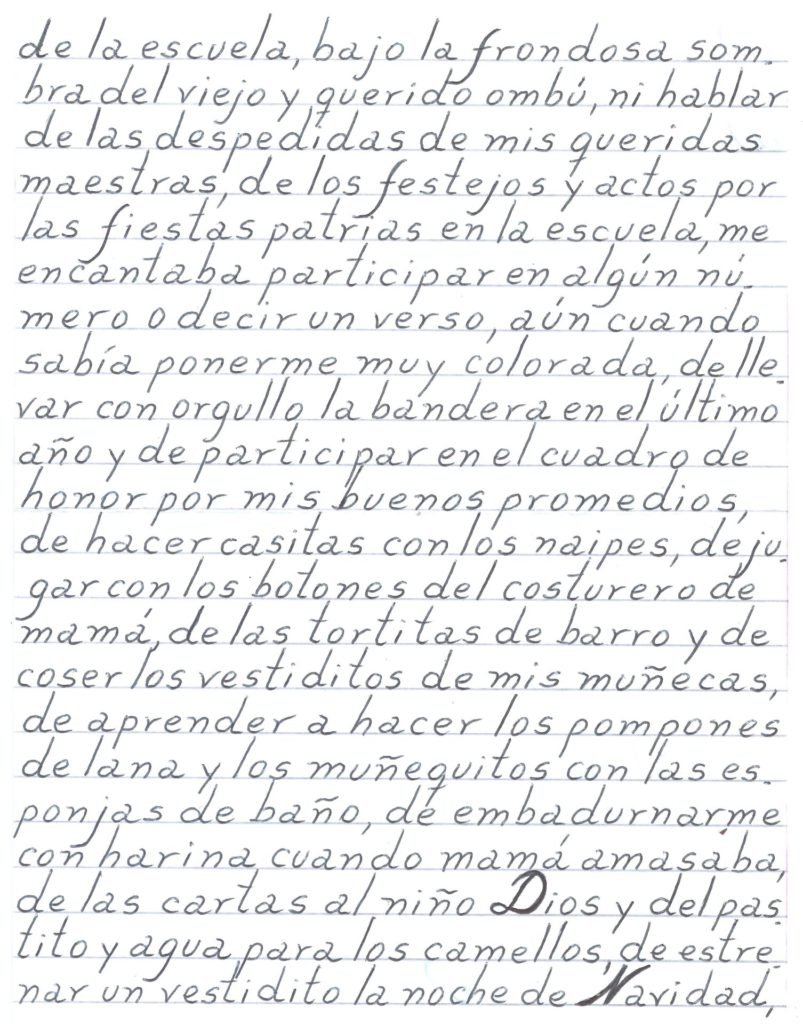 de la escuela, bajo la frondosa som-
bra del viejo y querido ombú, ni hablar
de las despedidas de mis queridas
maestras, de los festejos y actos por
las fiestas patrias en la escuela, me
encantaba participar en algún nú-
mero o decir un verso, aún cuando
sabía ponerme muy colorada, de lle-
var con orgullo la bandera en el último
año y de participar en el cuadro de
honor por mis buenos promedios,
de hacer casitas con los naipes, de ju-
gar con los botones del costurero de
mamá, de las tortitas de barro y de
coser los vestiditos de mis muñecas,
de aprender a hacer los pompones
de lana y los muñequitos con las es-
ponjas de baño, de embadurnarme
con harina cuando mamá amasaba,
de las cartas al niño Dios y del pas-
tito y agua para los camellos, de estre-
nar un vestidito la noche de Navidad,